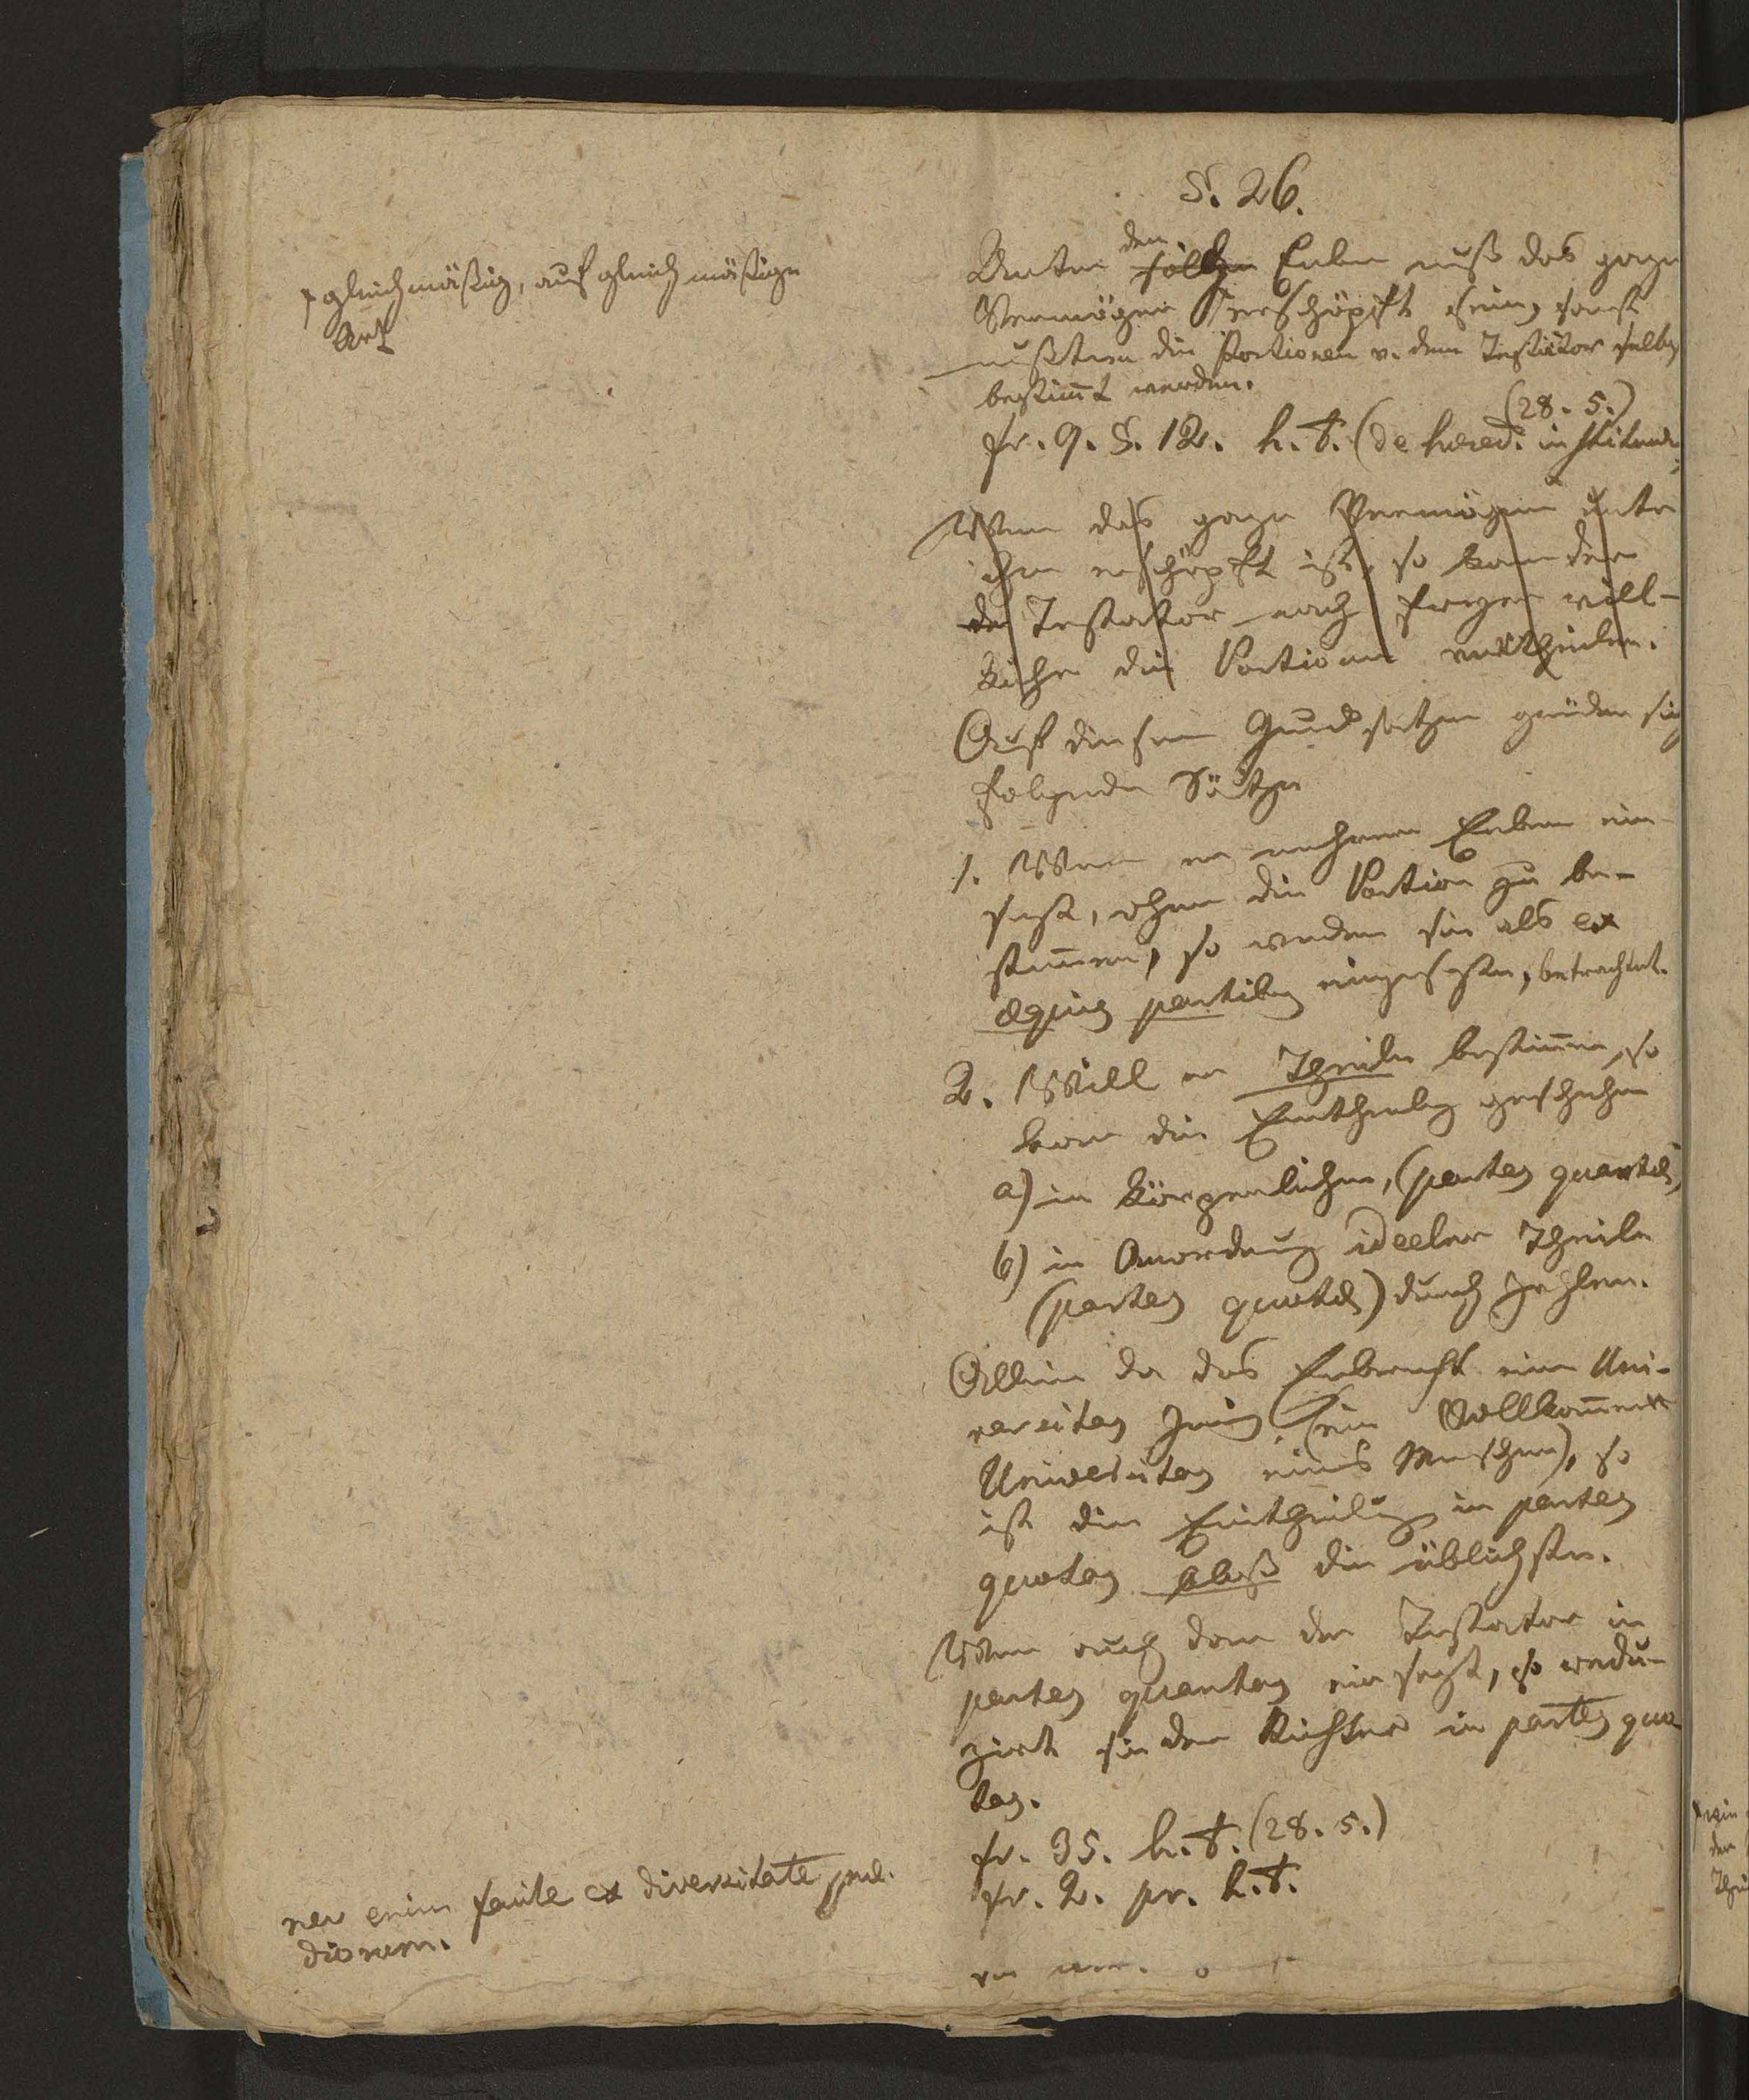 §. 26.
Unter den solchen Erben muß das ganze
Vermögen erschöpft sein, sonst
müßten die Portionen v. dem Testator selbst
bestimt werden.
(28. 5.)
fr. 9. §. 12. h. t. (de hered. instituend.
Wenn das ganze Vermögen unter
ihn erschöpft ist, so kann der
der Testator nach freyer will-
kühr die Portionen vertheilen.
Auf diesem Grundsatzen gründen sich
folgende Sätze
1. Wenn er mehrere Erben ein
setzt, ohne die Portion zu be-
stimmen, so werden sie als ex
æquis partibus eingesetzte, betrachtet.
2. Will er Theile bestimmen, so
kann die Eintheilung geschehen
a) in körperlichen, (partes quantas,
b) in Anordnung ideeler Theile
(partes quotas) durch Zahlen.
Allein da das Erbrecht eine Uni-
versitas juris (ein Vollkommene
Universitas eines Menschen), so
ist die Eintheilung in partes
quotas bloß die üblichste.
Wenn auch dann der Testator in
partes quantas einsetzt, so redu-
zirt sie der Richter in partes quo
tas.
fr. 35. h. t. (28. 5.)
fr. 2. pr. h. t.
gleichmäßig, auf gleichmäßige
Art
nec enim facile ex diversitate